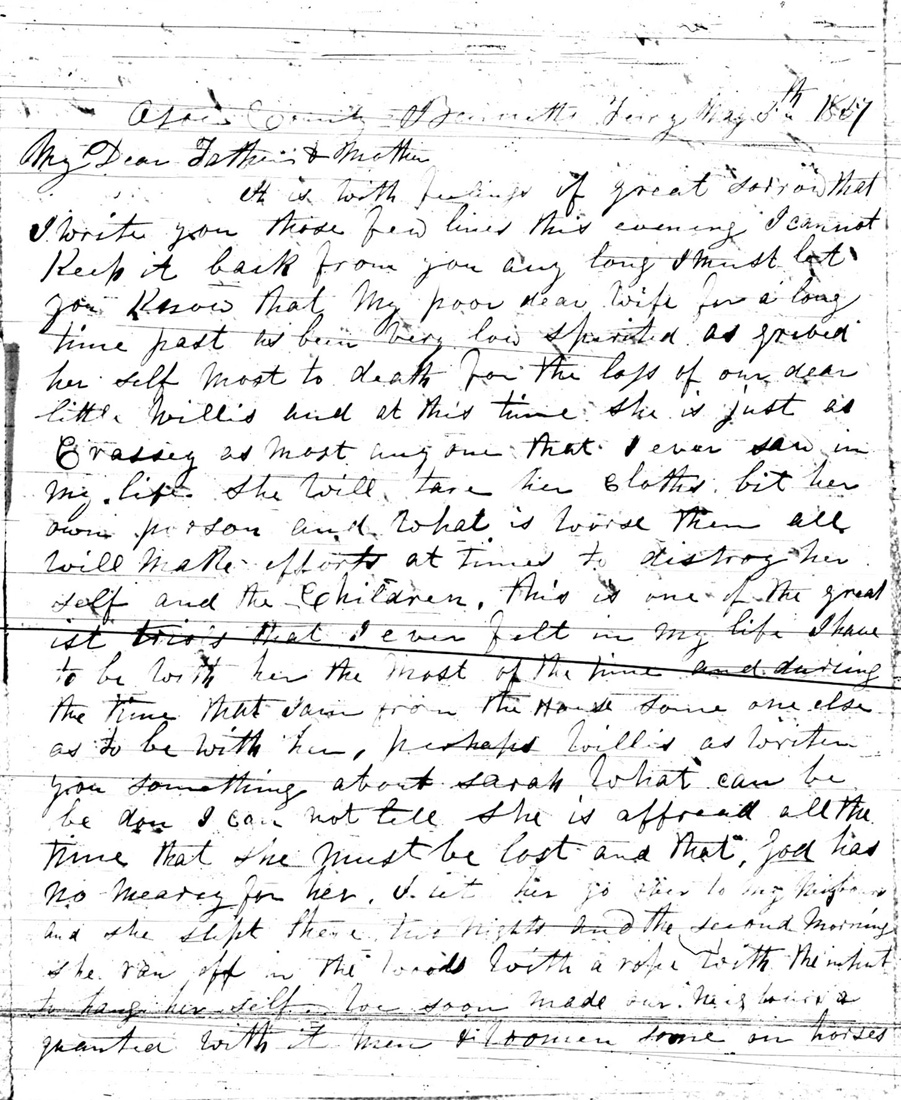 County Bennetts Ferry May 5th 1857
My Dear Father & Mother
It is with feelings of great sorrow that
I write you those few lines this evening I cannot
Keep it back from you any long I must let
you Know that My poor dear wife for a long
time past as bein very low spirited as grived
her self most to death for the loss of our dear
little Willis and at this time she is just as
Crassey as most any one that I ever saw in
my life She will tare her Cloths bit her
own person and What is worse then all
will make efforts at times to distroy her
self and the Children, this is one of the great
ist trials that I ever felt in my life I have
to be with her the most of the time and during
the time that I am from the House some one else
as to be with her, perhaps Willis as writen
you something about sarah What can be
be don I can not tell She is affread all the
time that she must be lost and that, God has
no mearcy for her. I let her go over to my
and she slept there two nights and the second Morning
she ran off in the woods With a rope With the intent
to hang her self. We soon made our neighbours a
quanted with it Men & Woomen some on horses